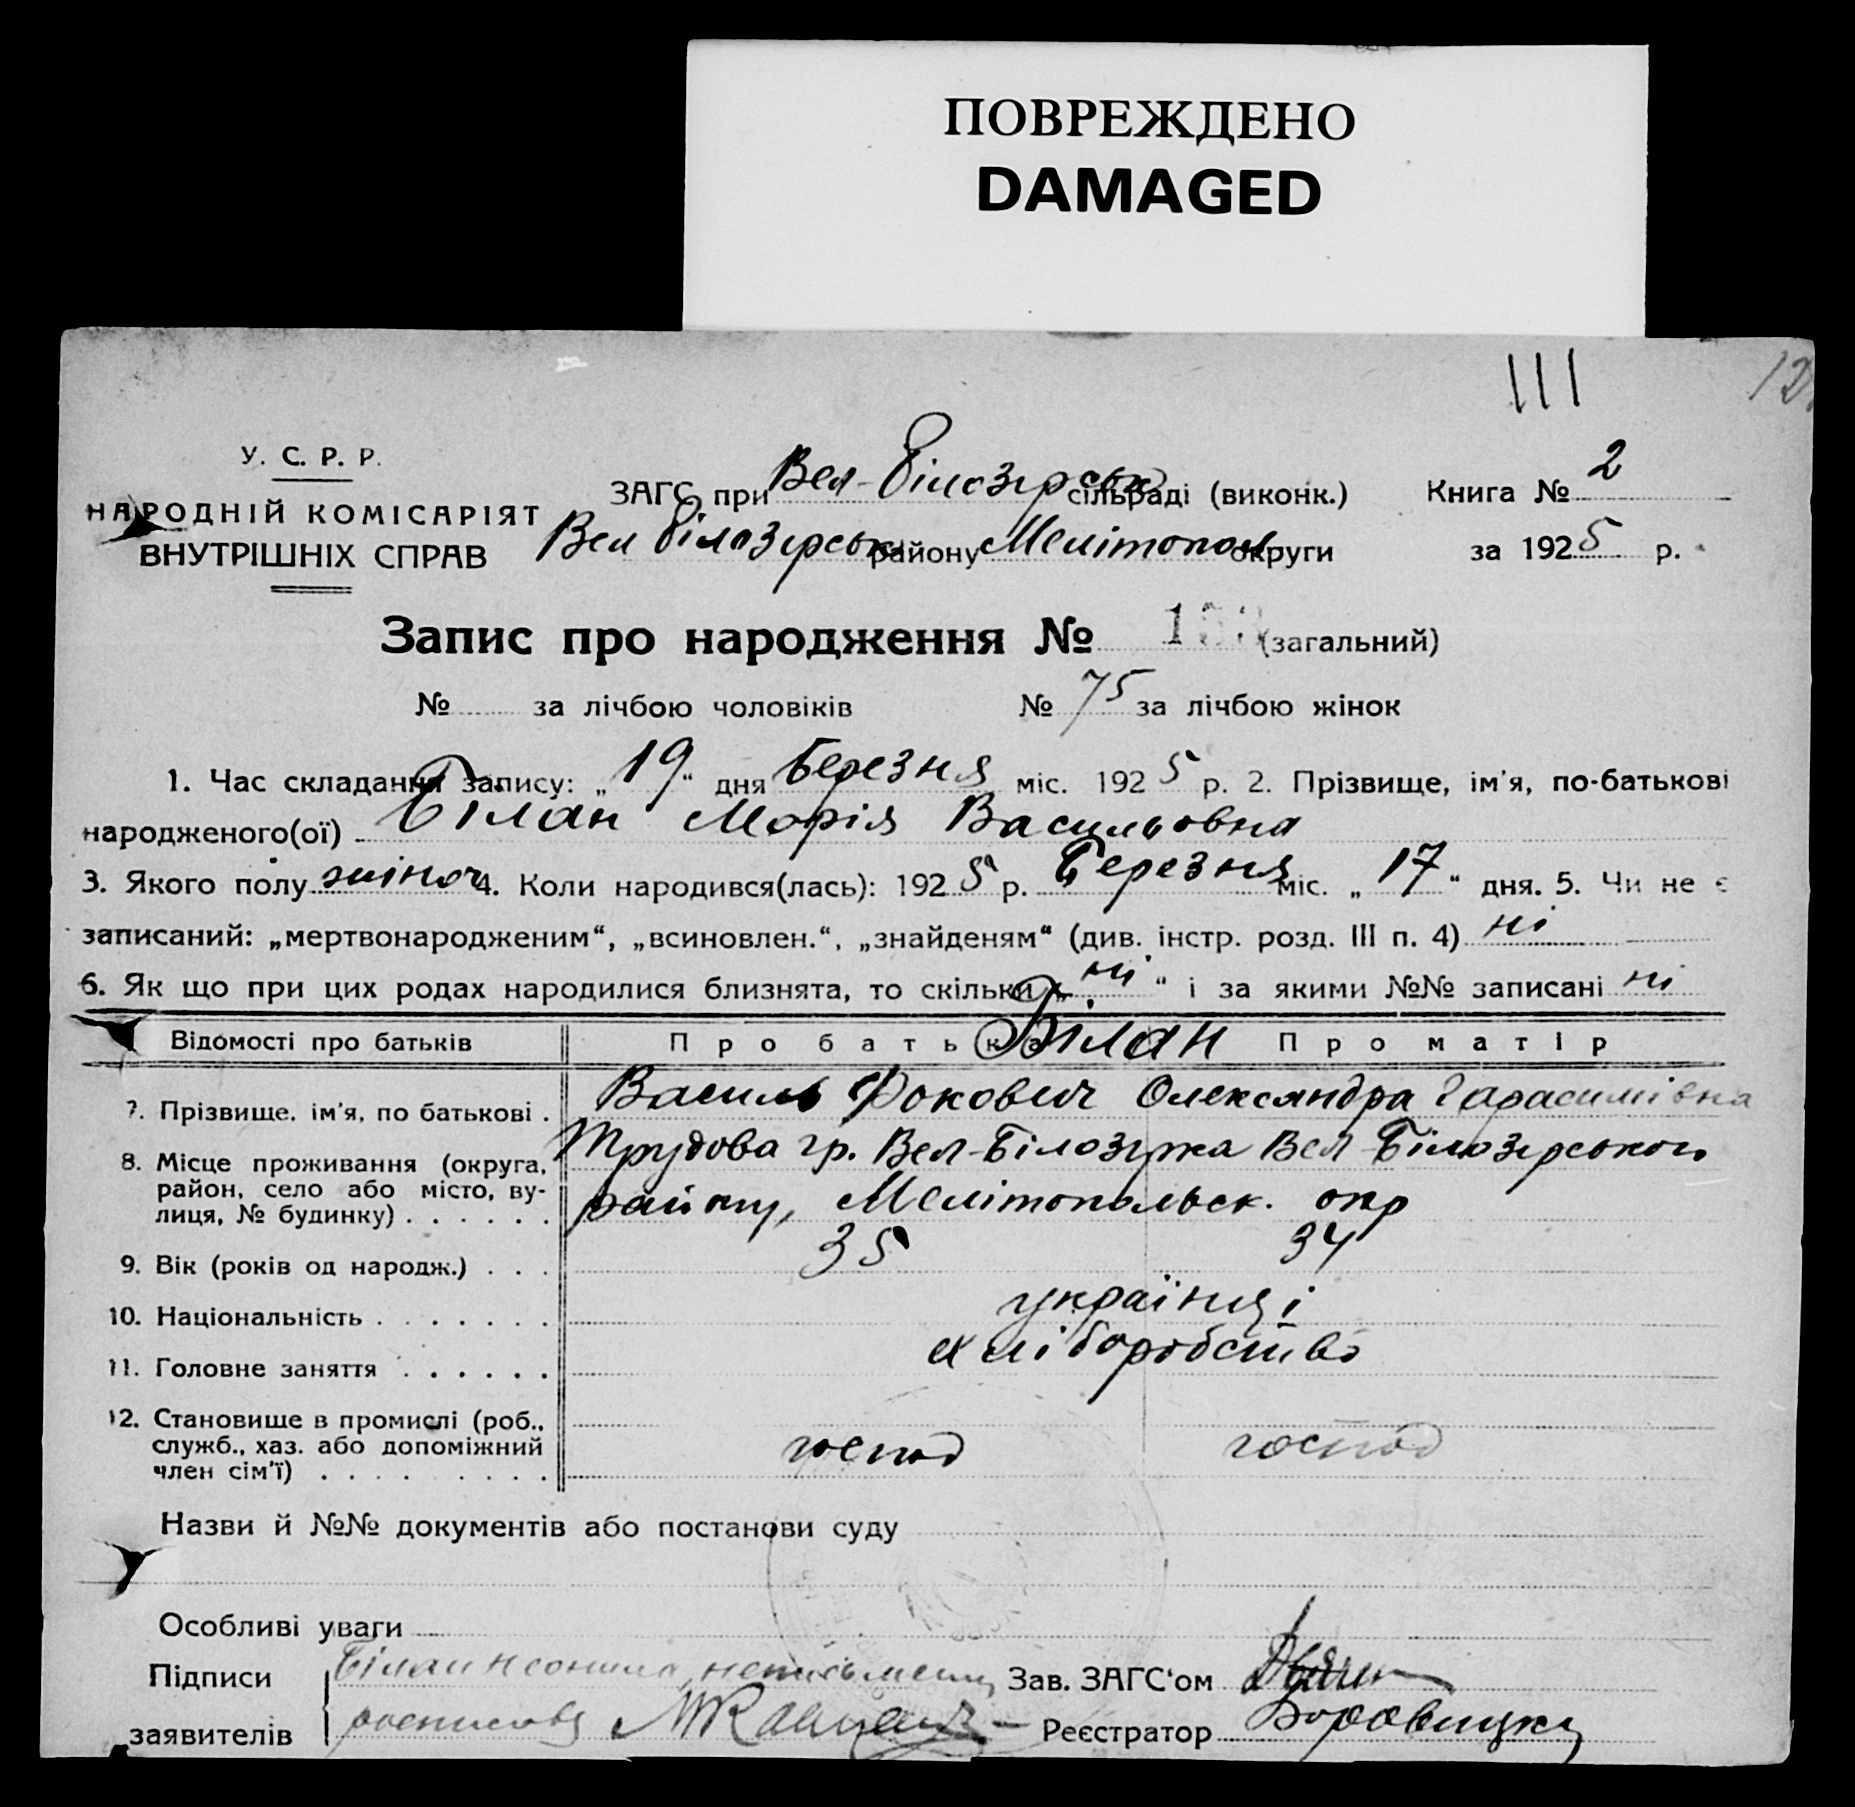 ПОВРЕЖДЕНО
DAMAGED
III 12
У. С. Р. Р.
НАРОДНІЙ КОМІСАРІЯТ
ВНУТРІШНІХ СПРАВ
ЗАГС при Вел-Білозірськ сільраді (виконк.) Книга № 2
Вел Білозірськ району Мелітопол округи за 1925 р.
Запис про народження № (загальний)
№ за лічбою чоловіків № 75 за лічбою жінок
1. Час складання запису: „19“ дня Березня міс. 1925 р. 2. Прізвище, ім'я, по-батькові
народженого(ої) Білан Марія Васильовна
3. Якого полу жіноч 4. Коли народився(лась): 1925 р. Березня міс. „17“ дня. 5. Чи не є
записаний: „мертвонародженим“, „всиновлен.“, „знайденям“ (див. інстр. розд. III п. 4) ні
6. Як що при цих родах народилися близнята, то скільки „ні“ і за якими №№ записані ні
Відомості про батьків Про батька Білан Про матір
7. Прізвище, ім'я, по батькові . Василь Фокович Олександра Гарасимівна
8. Місце проживання (округа, район, село або місто, вулиця, № будинку) . . . . . . Трудова гр. Вел-Білозірка Вел-Білозірського
району, Мелітопольськ. окр
9. Вік (років од народж.) . . . 35 34
10. Національність . . . . . . . українці
11. Головне заняття . . . . . . хліборобство
12. Становище в промислі (роб., служб., хаз. або допоміжний член сім'ї) . . . . . . . . . господ господ
Назви й №№ документів або постанови суду
Особливі уваги
Підписи Білан неписьмен Зав. ЗАГС'ом
заявителів Реєстратор